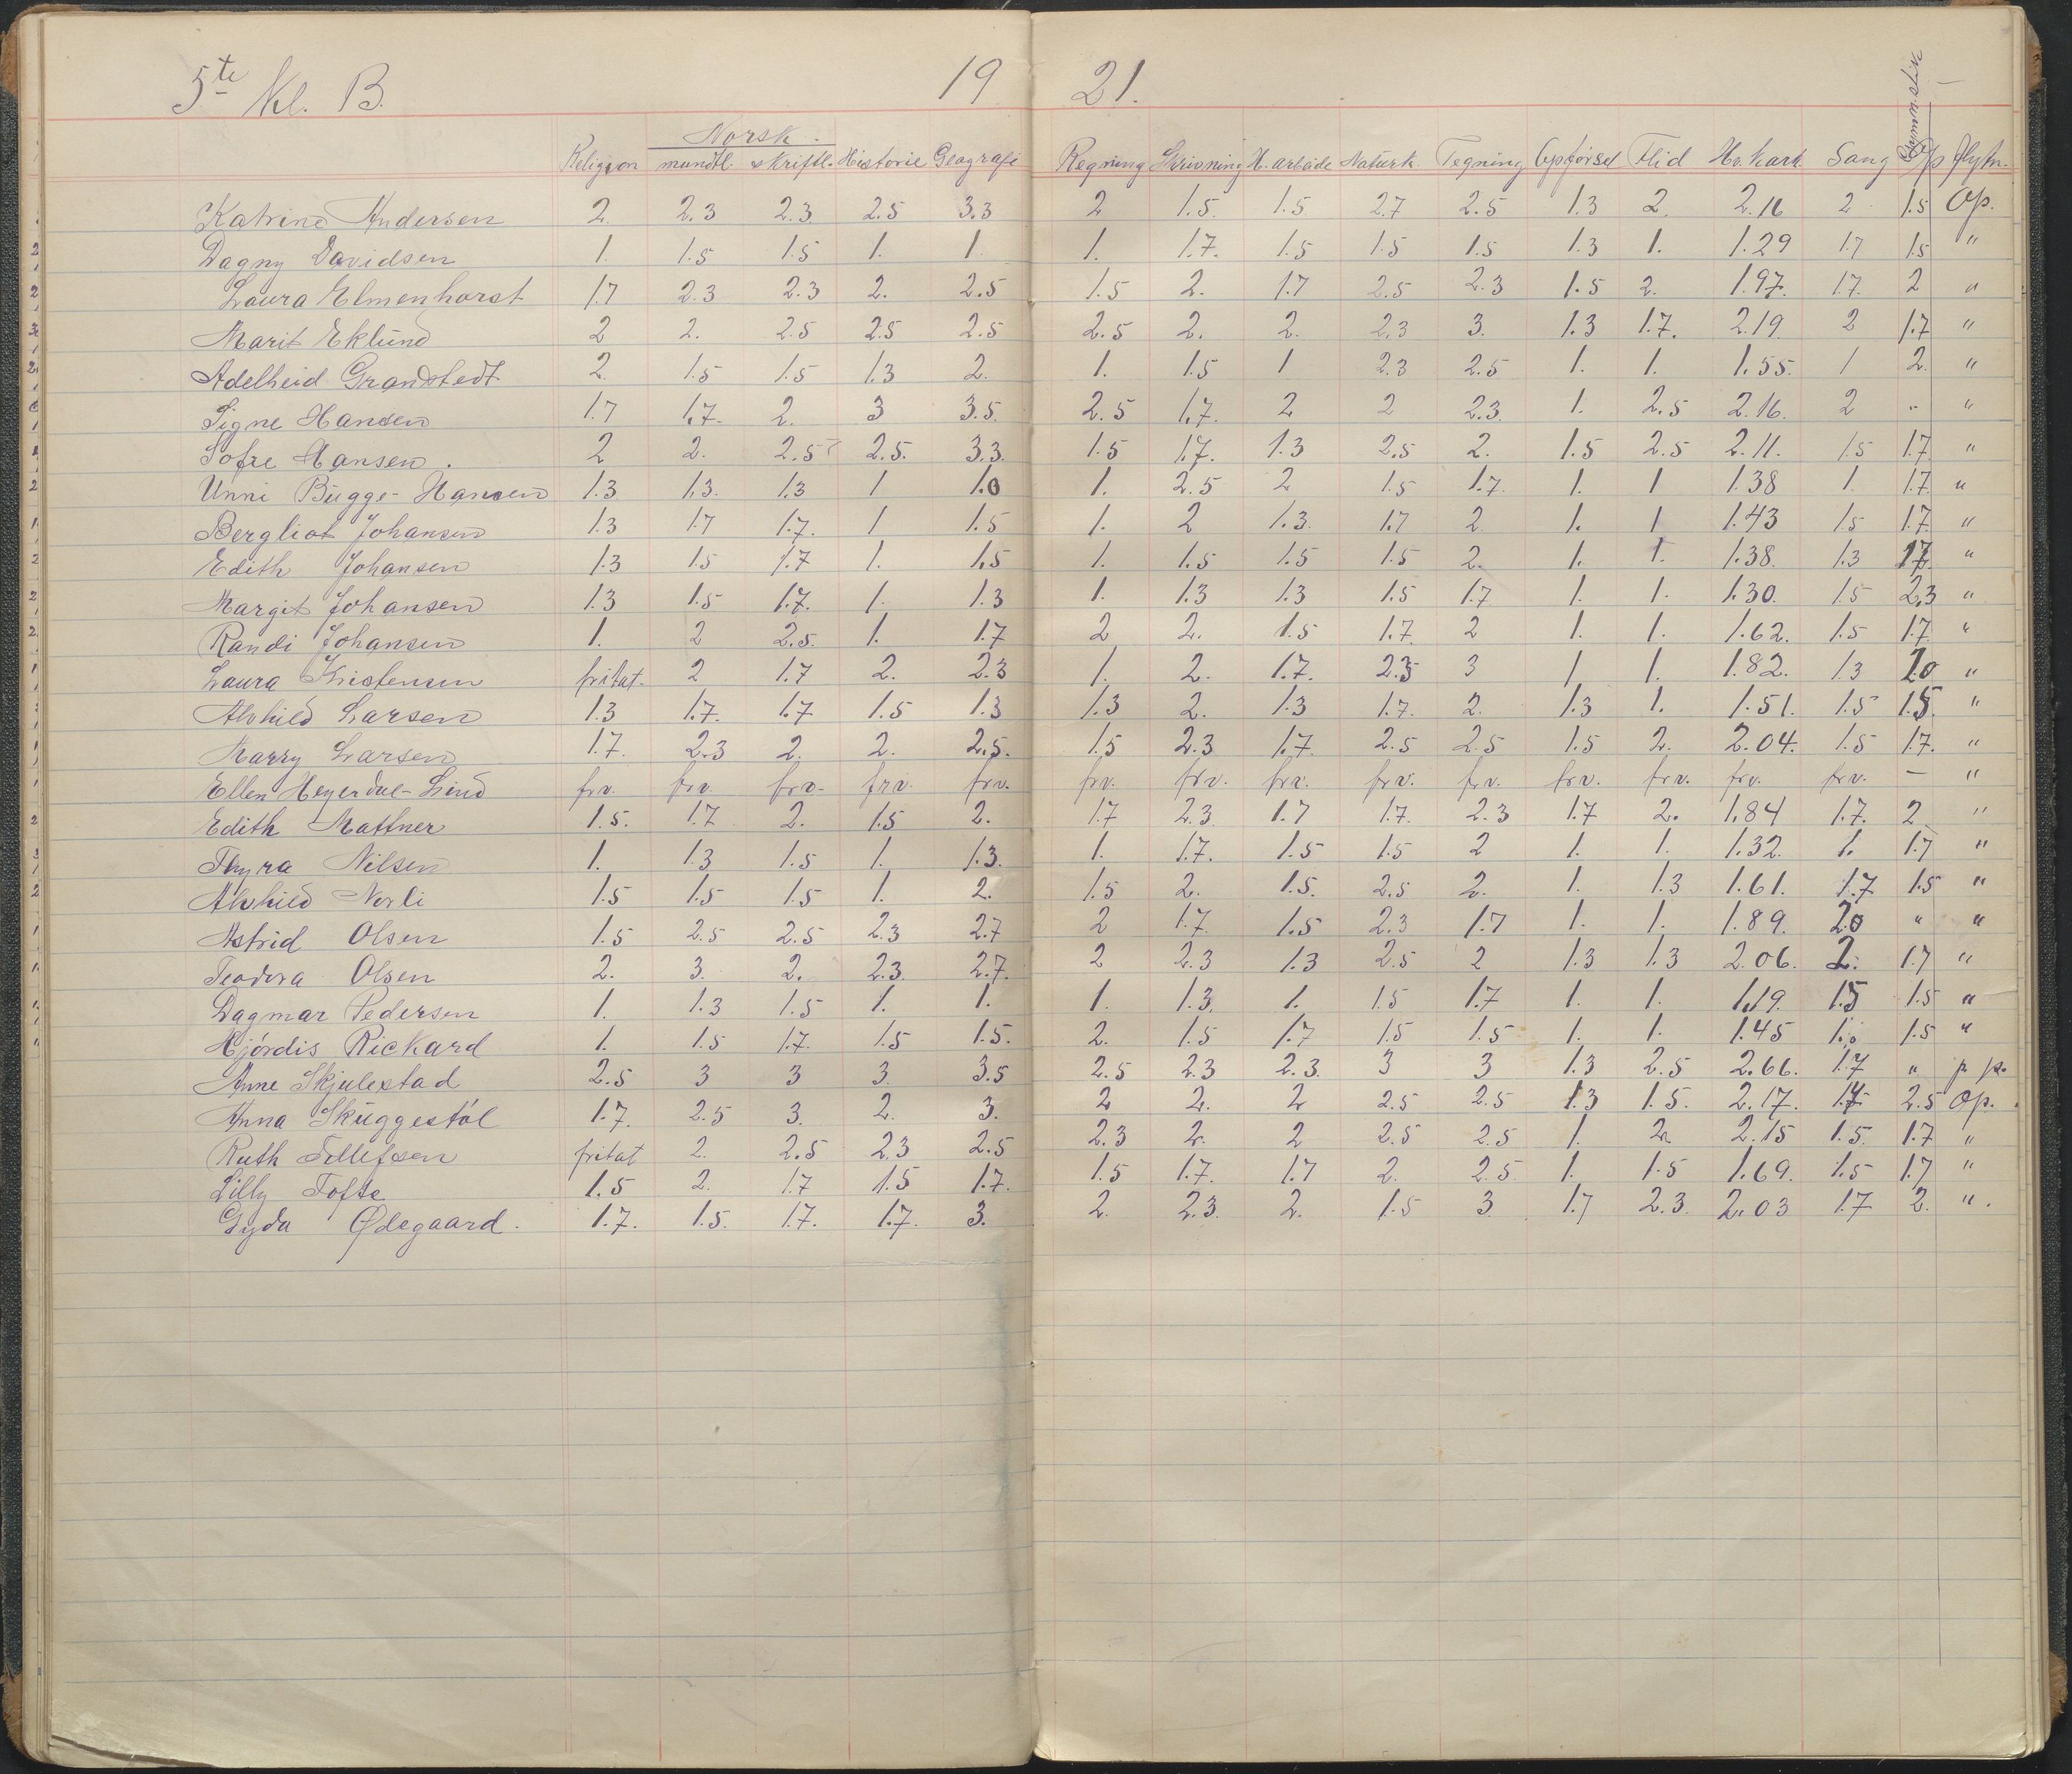 5te Kl. B. 19 21.
Norsk. Gymnastik
Religion mundtl. skriftl. Historie Geografi Regning Skrivning H. arbeide Naturk. Tegning Opførsel Flid Hv. kark. Sang Op flytn.
Katrine Andersen 2. 2.3 2.3 2.5 3.3 2 1.5. 1.5 2.7 2.5 1.3 2. 2.16 2 1.5 Op.
Dagny Davidsen 1. 1.5 1.5 1. 1. 1. 1.7. 1.5 1.5 1.5 1.3 1. 1.29 1.7 1.5 "
Laura Elmenhorst 1.7 2.3 2.3 2. 2.5 1.5 2. 1.7 2.5 2.3 1.5 2. 1.97. 1.7. 2 "
Marit Eklund 2 2. 2.5 2.5 2.5 2.5 2. 2. 2.3 3. 1.3 1.7. 2.19. 2 1.7 "
Adelheid Grandstedt 2. 1.5 1.5 1.3 2. 1. 1.5 1 2.3 2.5 1. 1. 1.55. 1 2. "
Signe Hansen 1.7 1.7. 2. 3 3.5. 2.5 1.7. 2 2 2.3. 1. 2.5 2.16. 2 - "
Sofie Hansen. 2 2. 2.5 2.5. 3.3. 1.5 1.7. 1.3 2.5 2. 1.5 2.5 2.11. 1.5 1.7 "
Unni Bugge-Hansen 1.3 1.3. 1.3 1 1.0 1. 2.5 2 1.5 1.7. 1. 1 1.38 1. 1.7. "
Bergliot Johansen 1.3 1.7 1.7. 1 1.5 1. 2 1.3. 1.7 2. 1. 1 1.43 1.5 1.7. "
Edith Johansen 1.3 1.5 1.7 1. 1.5 1. 1.5 1.5 1.5 2. 1. 1. 1.38. 1.3 1.7. "
Margit Johansen 1.3 1.5 1.7. 1. 1.3 1. 1.3 1.3 1.5 1.7 1. 1. 1.30. 1.5 2.3 "
Randi Johansen 1. 2 2.5. 1. 1.7 2 2. 1.5 1.7. 2 1. 1. 1.62. 1.5 1.7. "
Laura Kristensen fritat. 2 1.7 2. 2.3 1. 2. 1.7. 2.3 3 1 1. 1.82. 1.3 2.0 "
Alvhild Larsen 1.3 1.7. 1.7 1.5 1.3 1.3 2. 1.3 1.7. 2. 1.3 1. 1.51. 1.5 1.5. "
Marry Larsen 1.7. 2.3 2. 2. 2.5. 1.5 2.3 1.7. 2.5 2.5 1.5 2. 2.04. 1.5 1.7. "
Ellen Heyerdal-Lind frv. frv frv. frv. frv. frv. frv. frv. frv. frv. frv. frv. frv. frv. – "
Edith Mattner 1.5. 1.7 2. 1.5 2. 1.7 2.3 1.7 1.7. 2.3 1.7 2. 1.84 1.7. 2 "
Thyra Nilsen 1. 1.3 1.5 1. 1.3. 1. 1.7. 1.5 1.5 2 1. 1. 1.32. 1. 1.7 "
Alvhild Norli 1.5 1.5 1.5 1. 2. 1.5 2. 1.5. 2.5 2. 1. 1.3 1.61. 1.7. 1.5 "
Astrid Olsen 1.5 2.5 2.5 2.3 2.7 2 1.7. 1.5 2.3 1.7 1. 1. 1.89. 2.0 " "
Teodora Olsen 2. 3. 2. 2.3. 2.7. 2 2.3 1.3 2.5 2 1.3 1.3 2.06. 2. 1.7 "
Dagmar Pedersen 1. 1.3 1.5 1. 1. 1. 1.3. 1. 1.5 1.7 1. 1. 1.19. 1.5 1.5 "
Hjördis Rickard 1. 1.5 1.7. 1.5 1.5. 2. 1.5 1.7 1.5 1.5 1. 1. 1.45 1.0 1.5 "
Anne Skjulestad 2.5 3 3 3. 3.5 2.5 2.3 2.3. 3 3 1.3 2.5 2.66. 1.7 " p p.
Anna Skuggestøl 1.7. 2.5 3. 2. 3. 2 2. 2 2.5 2.5 1.3 1.5. 2.17. 1.7 2.5 Op.
Ruth Tellefsen fritat 2. 2.5 2.3 2.5 2.3 2. 2 2.5 2.5 1. 2. 2.15 1.5. 1.7 "
Lilly Tofte 1.5 2. 1.7 1.5 1.7. 1.5 1.7. 1.7 2. 2.5. 1. 1.5 1.69. 1.5 1.7 "
Gyda Ødegaard. 1.7. 1.5. 1.7. 1.7. 3. 2. 2.3. 2. 1.5 3. 1.7 2.3. 2.03 1.7 2. ".